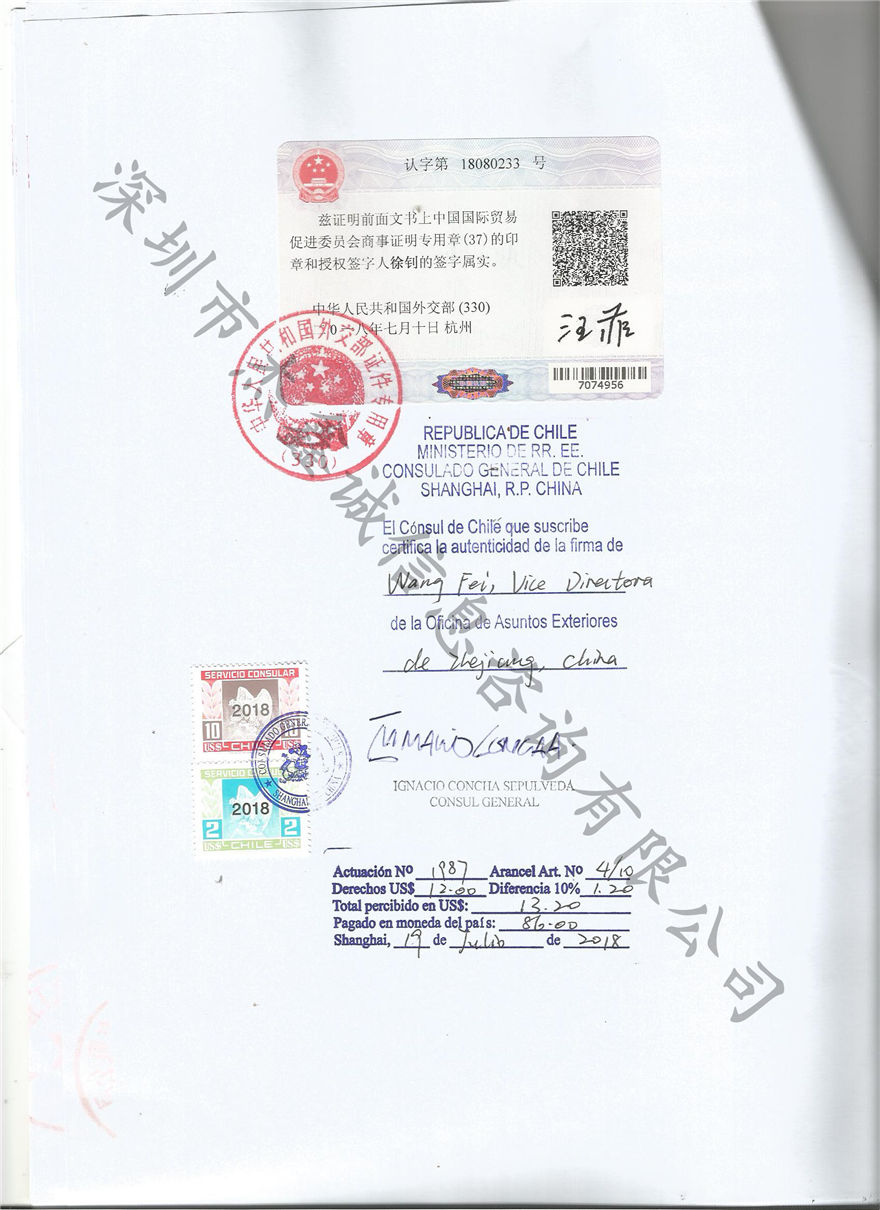 认字第 18080233 号
兹证明前面文书上中国国际贸易
促进委员会商事证明专用章(37)的印
章和授权签字人徐钊的签字属实。
中华人民共和国外交部(330)
二〇一八年七月十日 杭州
汪菲
7074956
中华人民共和国外交部证件专用章
(330)
REPUBLICA DE CHILE
MINISTERIO DE RR. EE.
CONSULADO GENERAL DE CHILE
SHANGHAI, R.P. CHINA
El Cónsul de Chile que suscribe
certifica la autenticidad de la firma de
Wang Fei, Vice Directora
de la Oficina de Asuntos Exteriores
de Zhejiang, China
SERVICIO CONSULAR
2018
10
US$ CHILE US$
SERVICIO CONSU
2018
2 2
US$ CHILE US$
CONSULADO GENER
SHANGHAI
IGNACIO CONCHA SEPULVEDA
CONSUL GENERAL
Actuación Nº 1987 Arancel Art. Nº 4/10
Derechos US$ 12.00 Diferencia 10% 1.20
Total percibido en US$: 13.20
Pagado en moneda del país: 86.00
Shanghai, 19 de Julio de 2018
深圳市杰鑫诚信息咨询有限公司